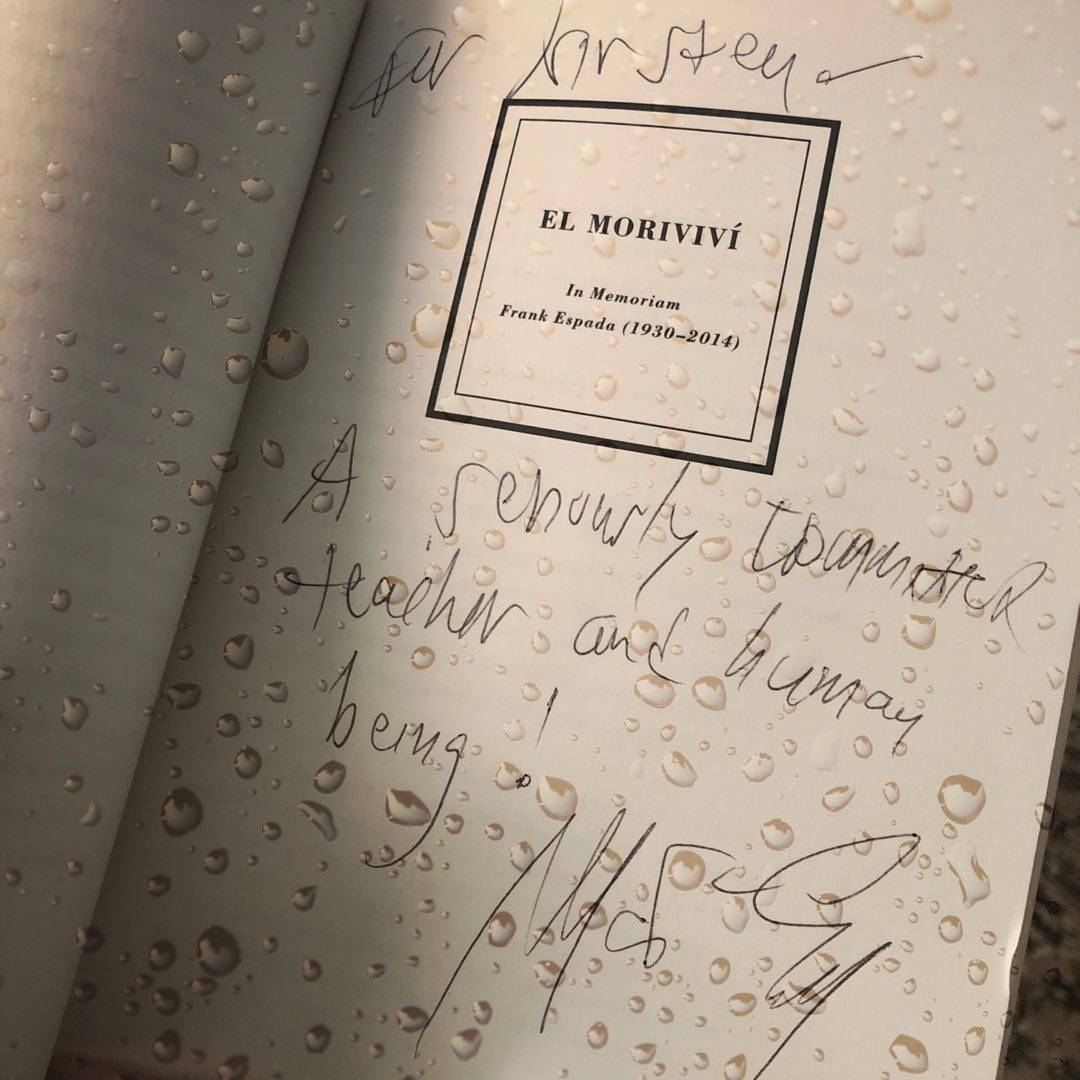 for Kirsten -
EL MORIVIVÍ
In Memoriam
Frank Espada (1930–2014)
A seriously committed
teacher and human
being!